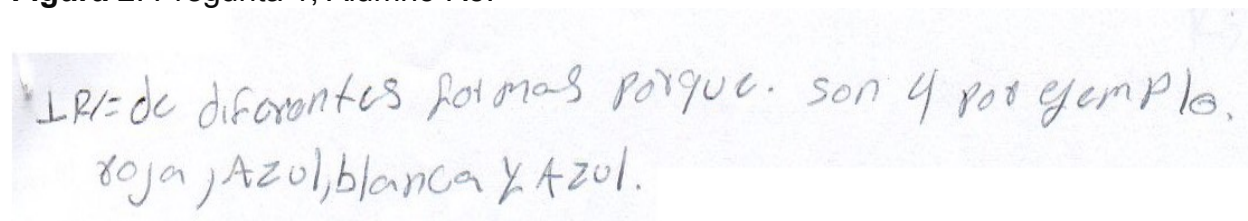 1R/= de diferontes formas porque. son 4 por ejemplo.
roja, Azul, blanca y Azul.